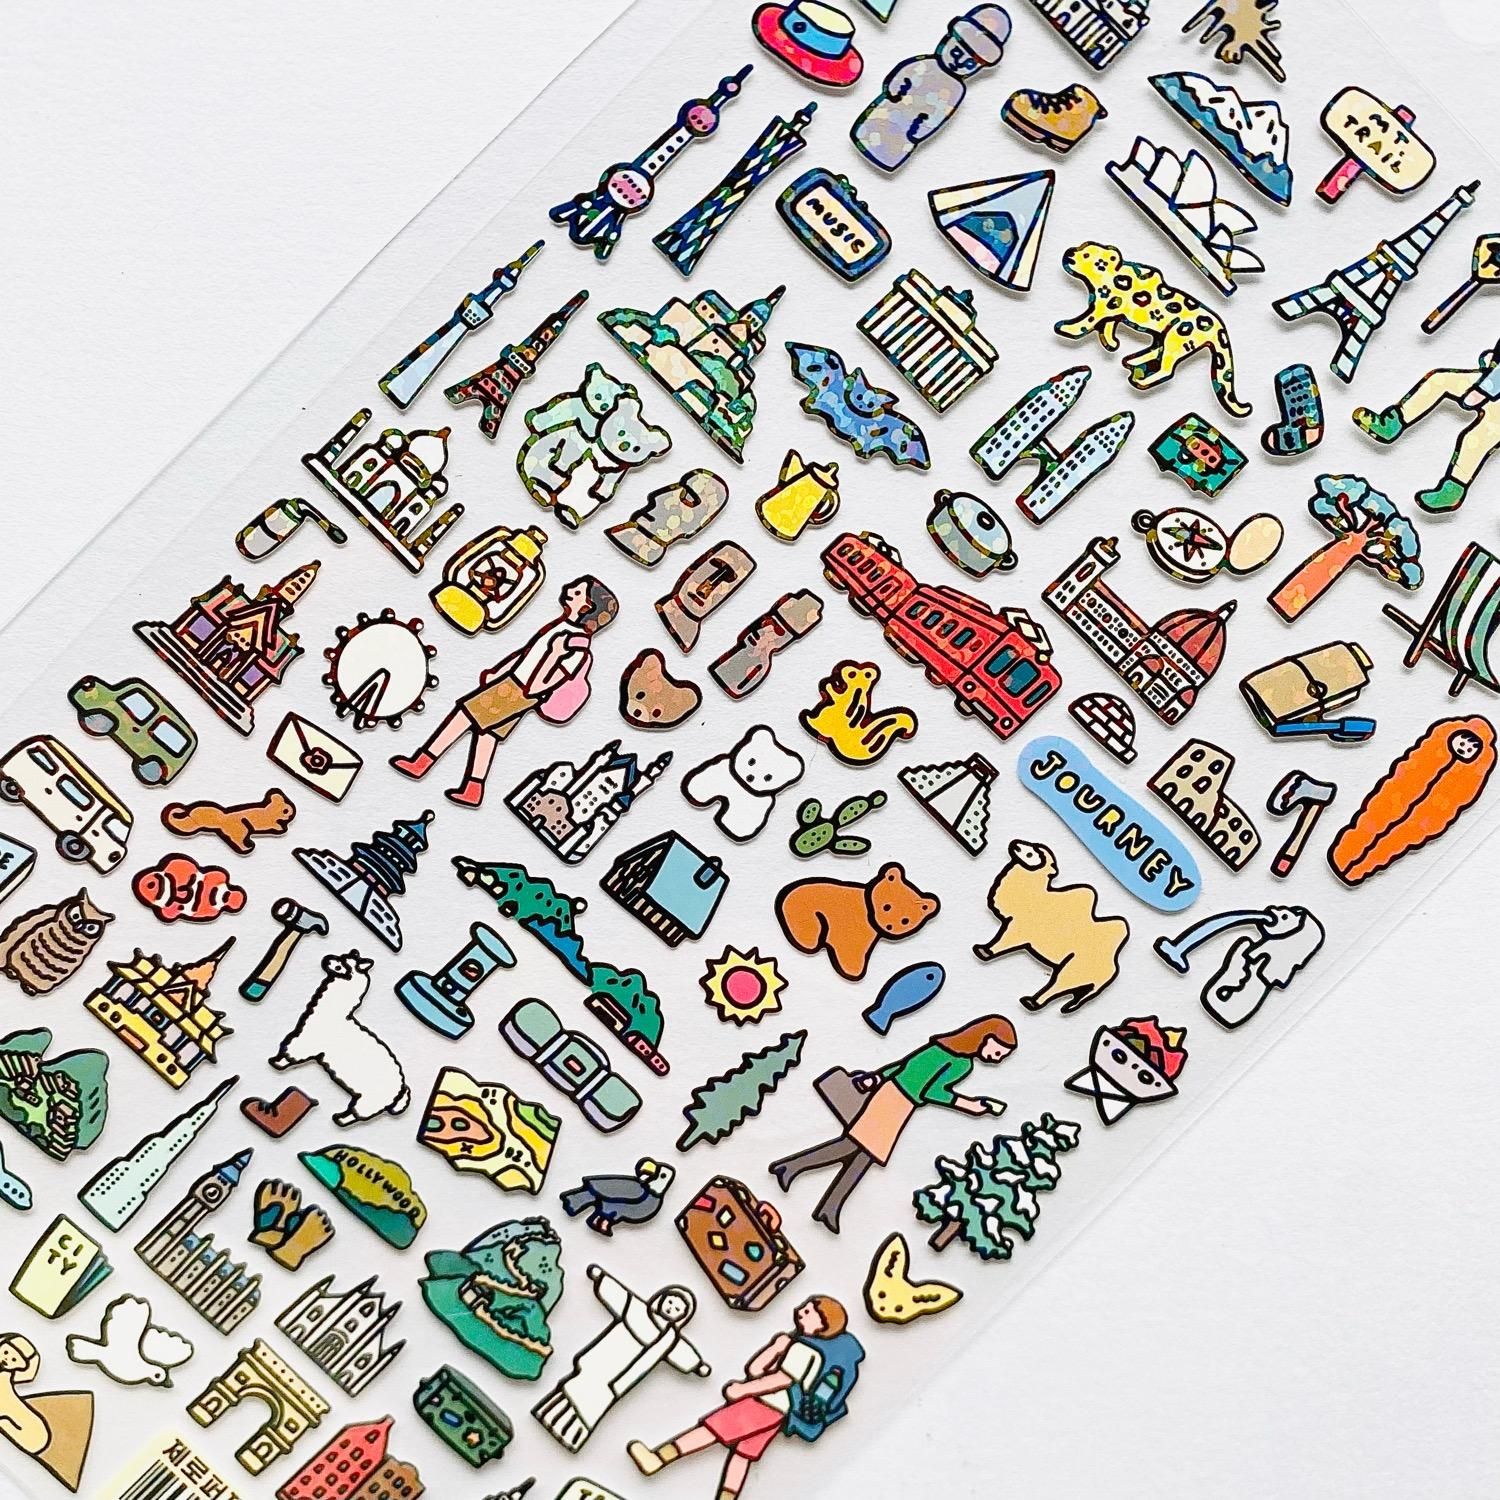 MT
TRAIL
MUSIC
JOURNEY
HOLLYWOOD
B1
B2.
CI
TY
제로퍼